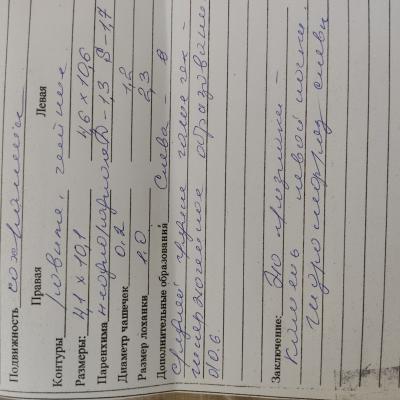 Подвижность сохранена
Правая Левая
Контуры ровные, четкие
Размеры: 4,1 х 10,1 4,6 х 10,6
Паренхима неоднородная D - 1,3 S - 1,7
Диаметр чашечек 0,2 1,2
Размер лоханки 1,0 2,3
Дополнительные образования Слева - в
средней группе чашечек -
гиперэхогенное образование
d 0,6
Заключение: Эхо признаки -
камень левой почки.
гидронефроз слева